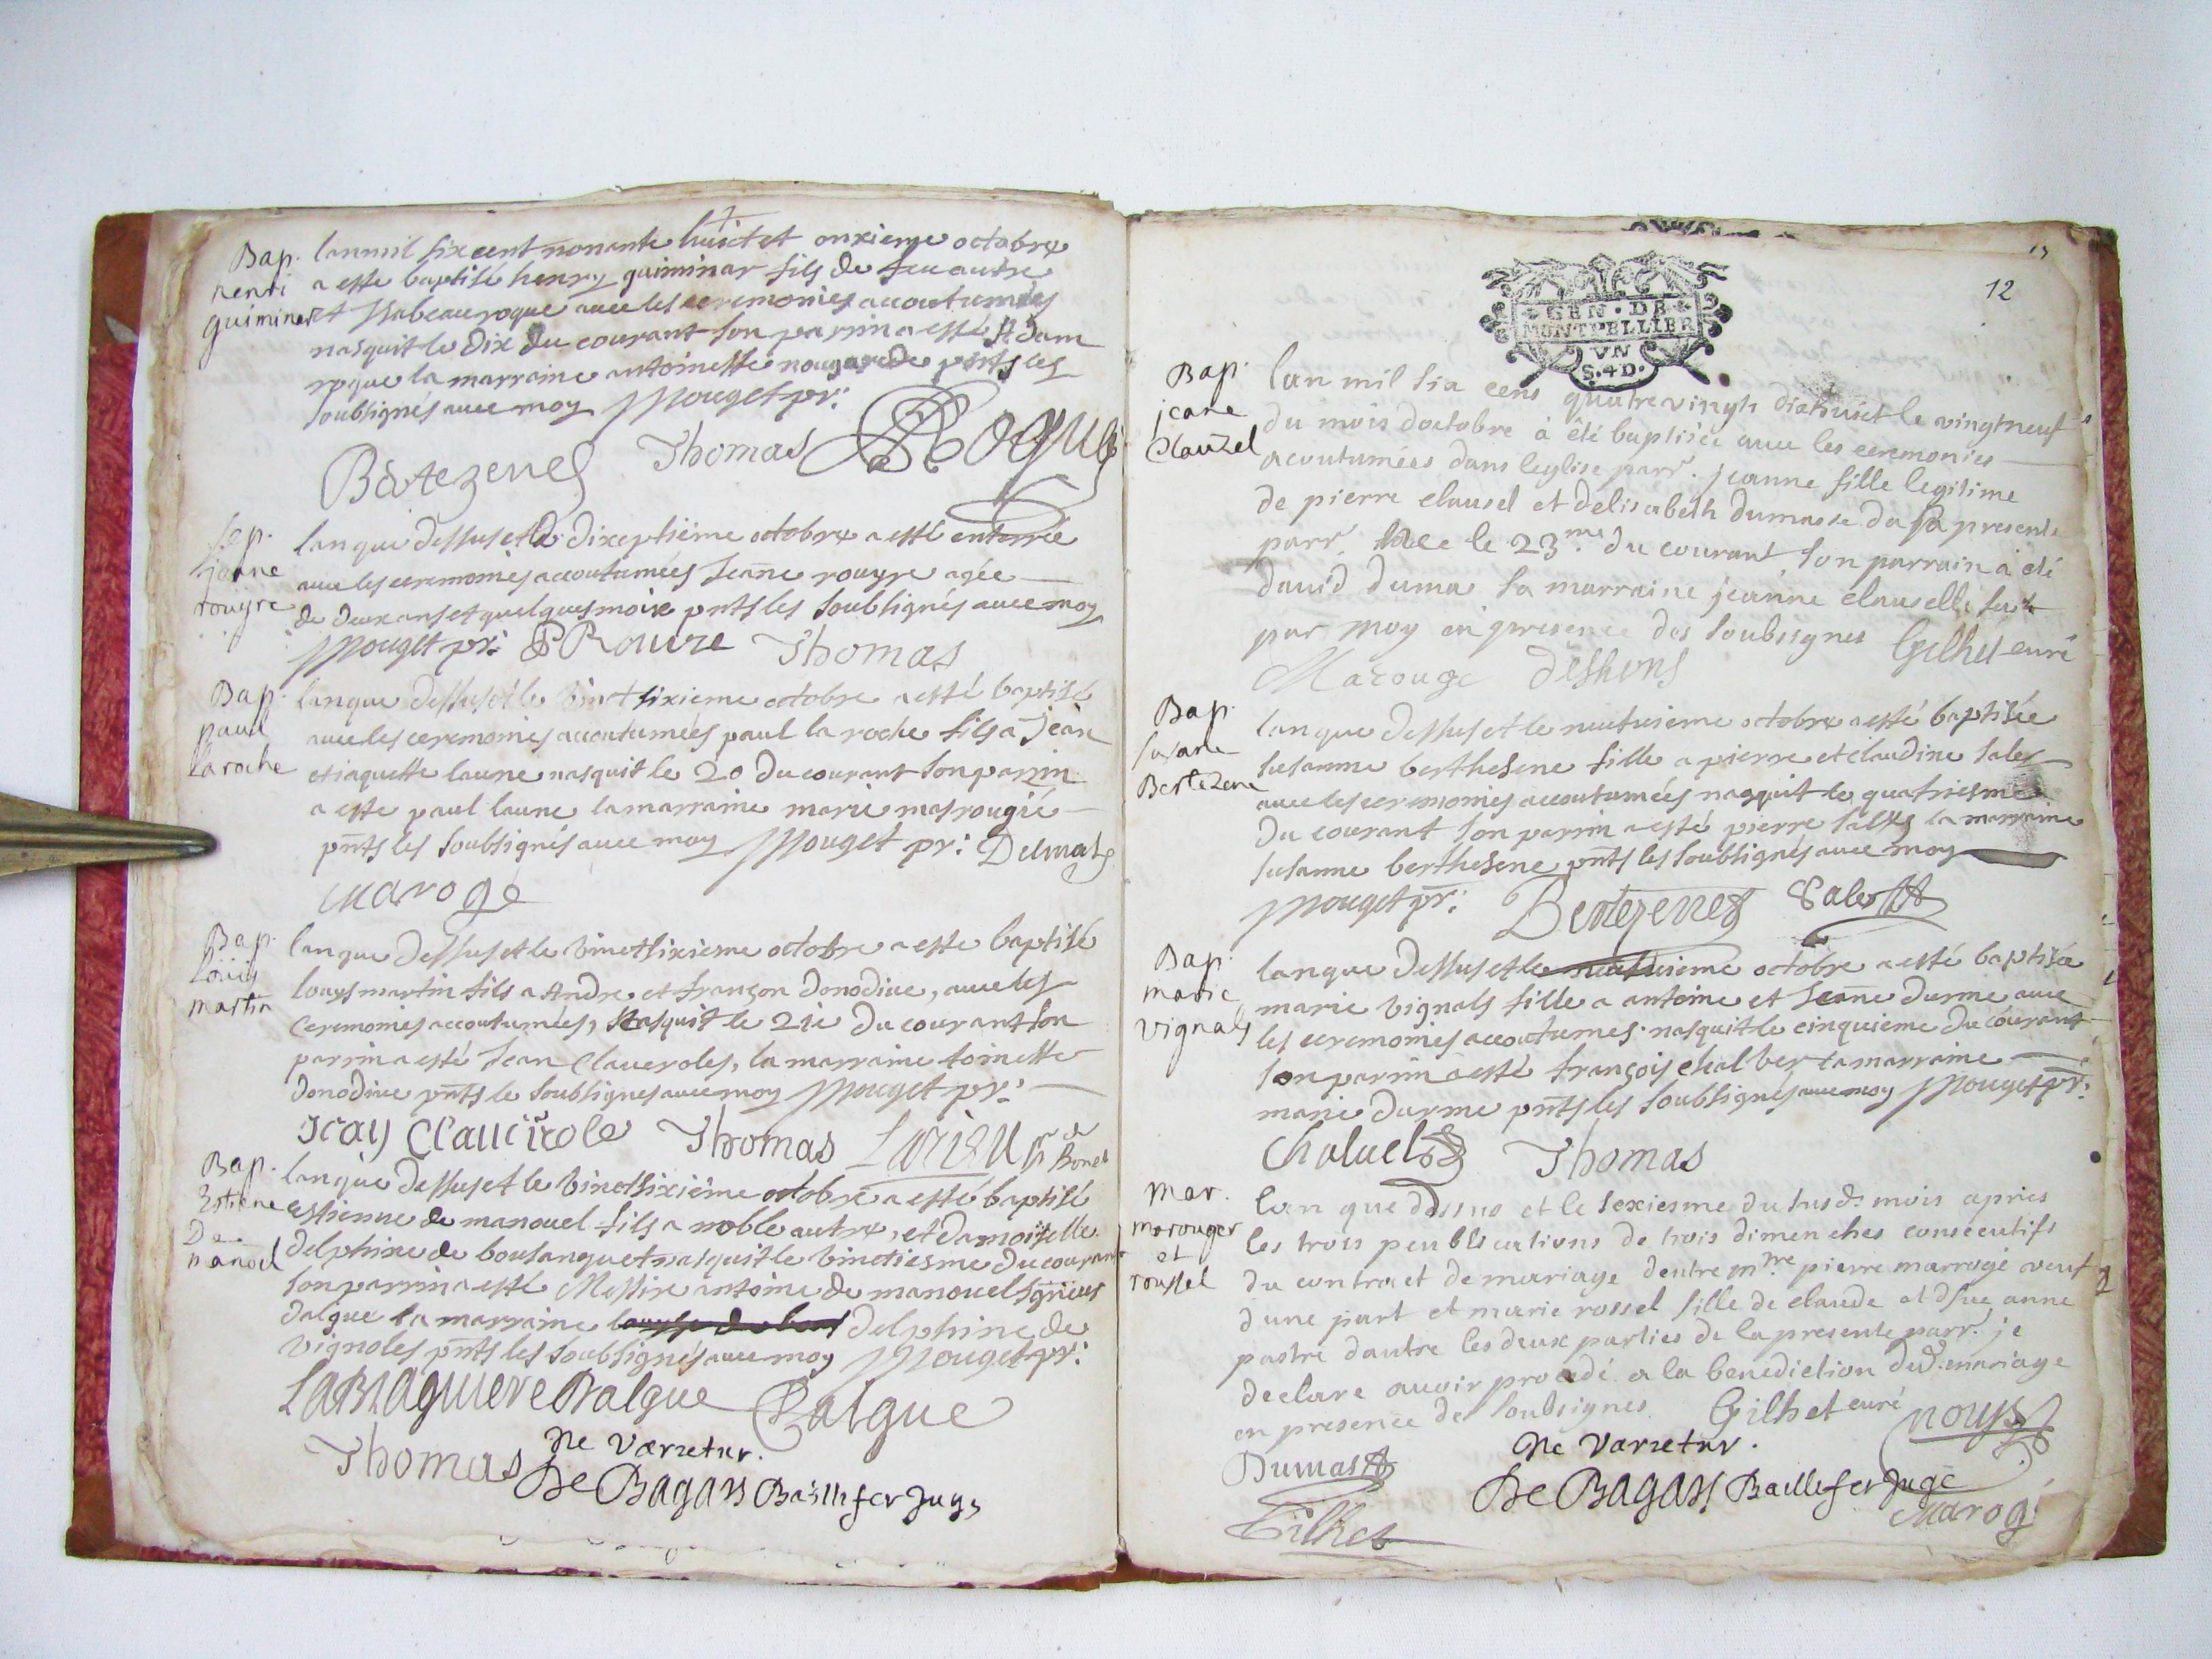 Bap. henri guiminar
lan mil six cent nonante huict et onxieme octobre
a este baptisé henry guiminar fils de feu autre
et Isabeau roque avec les ceremonies accoutumées
nasquit le dix du courant son parrin a esté Adam
roque la marraine antoinette nougarede pnts les
soubsignés avec moy Mouget pr:
Bertezenes Thomas Roque
sep. jeane rouyre
lan que dessus et le dixeptième octobre a esté enterrée
avec les ceremonies accoutumées Jeane rouyre agée
de deux ans et quelques mois pnts les soubsignés avec moy
Mouget pr: Roure Thomas
Bap. paul laroche
lan que dessus et le vinct sixieme octobre a esté baptisé
avec les ceremonies accoutumées paul la roche fils a Jean
et iaquette laune nasquit le 20 du courant son parrin
a este paul laune la marraine marie masrougie
pnts les soubsignés avec moy Mouget pr: Delmas
Maroge
Bap. louis martin
lan que dessus et le vinct sixieme octobre a este baptisé
louys martin fils a Andre et françon donodive, avec les
ceremonies accoutumées, nasquit le 21e du courant son
parrin a esté Jean Claveroles, la marraine toinette
donodive pnts le soubsignes avec moy Mouget pr:
Jean Claveirole Thomas
Bap. Estiene De manoel
lan que dessus et le vinct sixième octobre a esté baptisé
estienne de manouel fils a noble autre, et damoiselle
delphine de boulanguet nasquit le vinctiesme du courant
son parrin a esté Messire antoine de manouel sgneur
dalgue la marraine delphine de
vignoles pnts les soubsignés avec moy Mouget pr:
LaBraguiere Dalgue Dalgue
Thomas Ne Varietur.
De Bagars Baillif er Juge
13
12
GEN. DE
MONTPELLIER
VN
S. 4 D.
Bap. jeane Clauzel
lan mil six cens quatre vingh dixhuict le vingtneuf
du mois doctobre à été baptisée avec les ceremonies
acoutumées dans leglise parr. jeanne fille legitime
de pierre clausel et delisabeth dumasse de la presente
parr. née le 23me du courant, son parrain à été
david duma sa marraine jeanne clauselle, fait
par moy en presence des soubssignes Gilhet curé
Marouge Deshons
Bap. susane Bertezene
lan que dessus et le neufvieme octobre a esté baptisée
susanne berthesene fille a pierre et claudine sales
avec les ceremonies accoutumées nasquit le quatriesme
du courant son parrin a esté pierre salles la marraine
susanne berthesene pnts les soubsignés avec moy
Mouget pr: Bertezenes Sales
Bap. marie vignals
lan que dessus et le neufvieme octobre a esté baptisée
marie vignals fille a antoine et Jeane durme avec
les ceremonies accoutumes. nasquit le cinquieme du courant
son parrin a esté françois chalbet la marraine
marie durme pnts les soubsignés avec moy Mouget pr:
Thomas
mar. marouger et roussel
lan que dessus et le sexiesme du susd. mois apries
les trois peublications de trois dimenches consecutifs
du contract de mariage dentre mtre pierre marrogé veuf
dune part et marie rossel fille de claude et dfue anne
pastre dautre les deux parties de la presente parr. je
declare avoir procedé a la benediction dud. mariage
en presence des soubsignes Gilhet curé nouys
Dumas Ne Varietur.
De Bagars Baillif er Juge
Gilhet Maroge